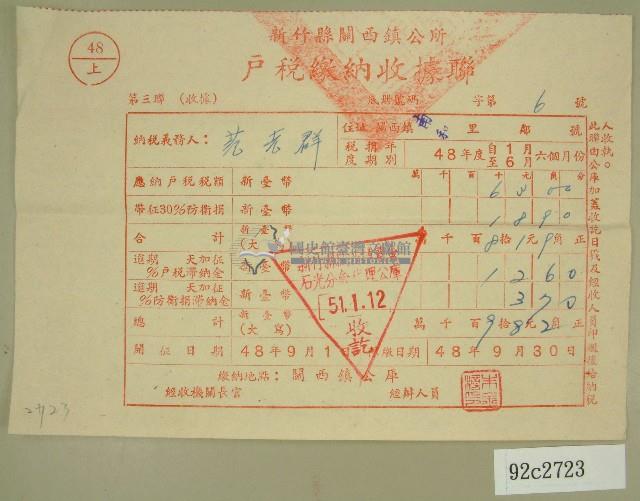 48
上
新竹縣關西鎮公所
戶稅繳納收據聯
第三聯 (收據) 底冊號碼 字第 6 號
納稅義務人: 范 群 住址 關西鎮 南和 里 鄰 號
稅捐年度期別 48年度 自1月至6月 六個月份
萬 千 百 十 元 角 分
應納戶稅稅額 新臺幣 6 3 0 0
帶征30%防衛捐 新臺幣 1 8 9 0
合計 新臺幣 (大寫) 萬 千 百 8 拾 1 元 9 角 正
逾期 天加征 %戶稅滯納金 新臺幣 1 2 6 0
逾期 天加征 %防衛捐滯納金 新臺幣 3 7 0
總計 新臺幣 (大寫) 萬 千 百 9 拾 8 元 2 角 正
開征日期 48年9月1日 繳日期 48年9月30日
繳納地點: 關西鎮公庫
經收機關長官 經辦人員
此聯由公庫加蓋收訖日戳及經收人員印
人收執。
國史館臺灣文獻館
TAIWAN HISTORICA
石光分 理公庫
51.1.12
收訖
2723
92c2723